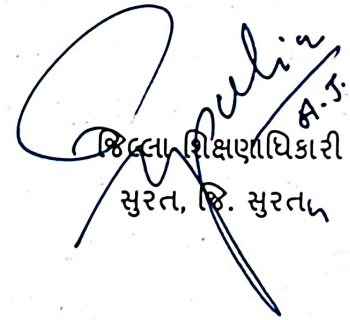 A.J.
જિલ્લા શિક્ષણાધિકારી
સુરત, જિ. સુરત